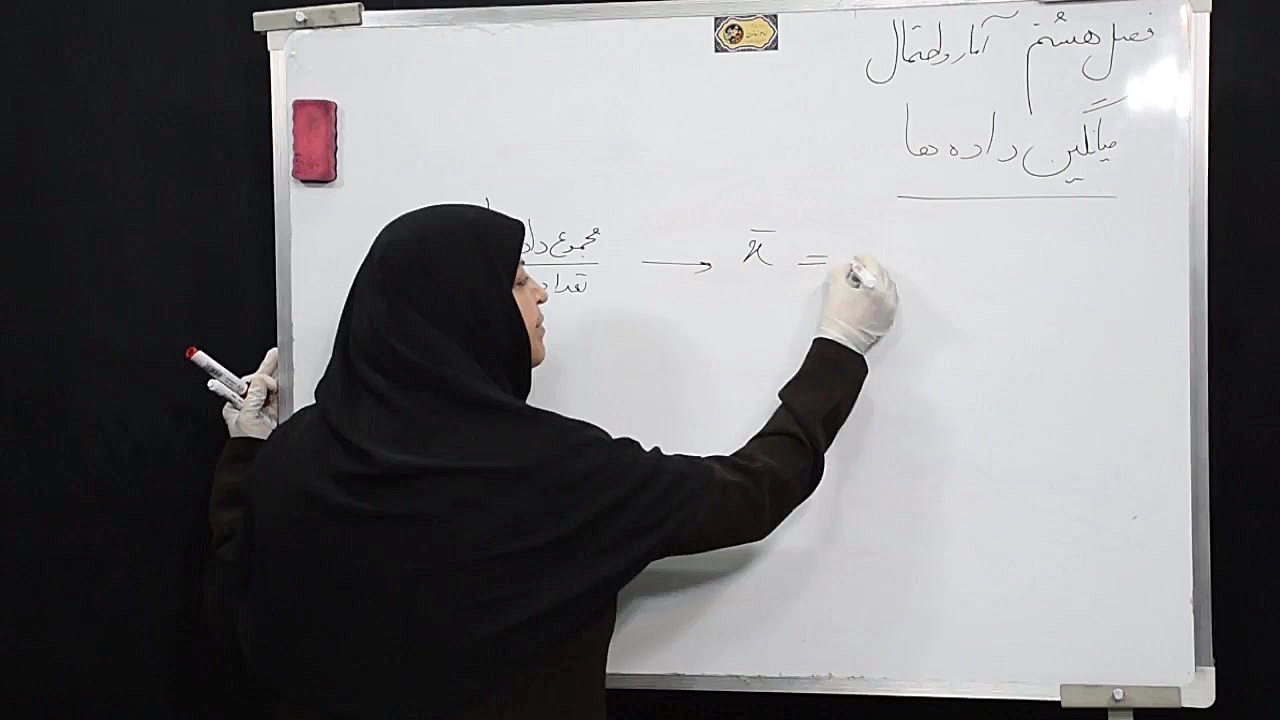 فصل هشتم آمار و احتمال
میانگین داده ها
مجموع
تعداد
→ x̄ =